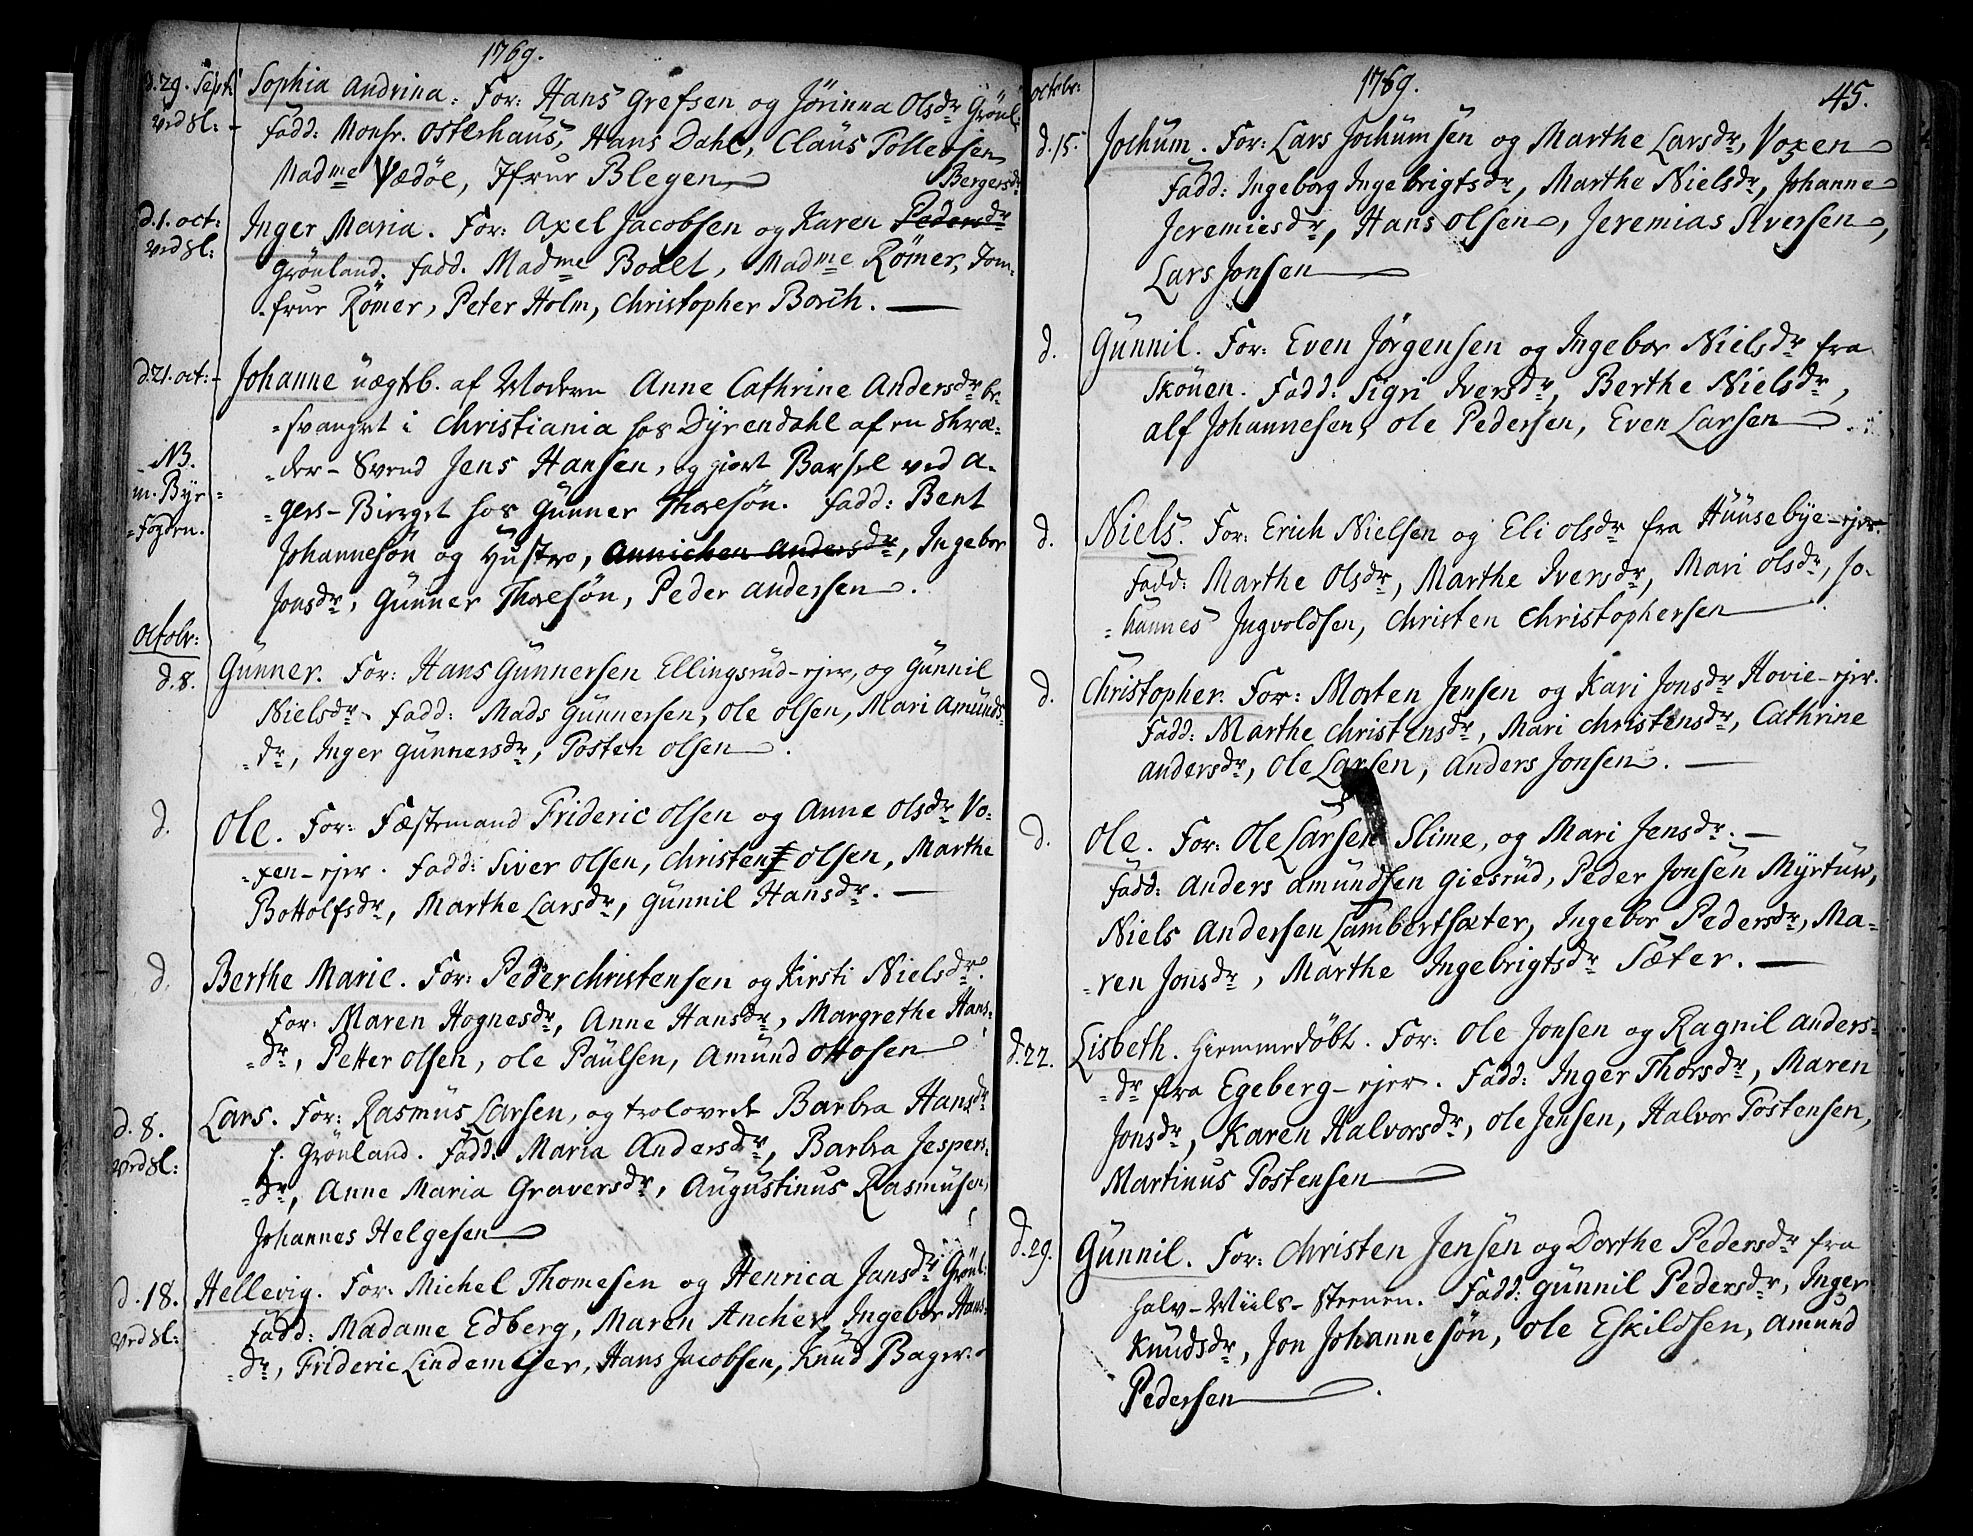 1769.
d. 29. Sept: Sophia Andrina. For: Hans Grefsen og Jörinna Olsdr Grönl:
ved Sl: Fadd: Monsr. Osterhaus, Hans Dahl, Claus Tollevsen
Madme Vædöe, Jfrur Blegen
Bergersdr
d. 1. oct: Inger Maria. For: Axel Jacobsen og Karen Pedersdr
ved Sl: Grönland. Fadd. Madme Boalt, Madme Römer, Jom-
-frur Römer, Peter Holm, Christopher Borch.
d. 21. oct: Johanne uægtb. af Modern Anne Cathrine Andersdr be-
-svangret i Christiania hos Dyrendahl af en Skræ-
NB. -der-Svend Jens Hansen, og giort Barsel ved A-
m. Bye- -gers-Bierget hos Gunner Thoresön. Fadd: Bent
-Fogden. Johannesön og Hustro, Annichen Andersdr, Ingebor
Jonsdr, Gunner Thoresön, Peder Andersen.
Octobr:
d. 8. Gunner. For: Hans Gunnersen Ellingsrud-ejer, og Gunnil
Nielsdr. Fadd: Mads Gunnersen, Ole Olsen, Mari Amunds-
-dr, Inger Gunnersdr, Tosten Olsen.
d. Ole. For: Fæstemand Frideric Olsen og Anne Olsdr Vo-
-xen-ejer. Fadd: Siver Olsen, Christen Olsen, Marthe
Bottolfsdr, Marthe Larsdr, Gunnil Hansdr.
d. Berthe Marie. For: Peder Christensen og Kirsti Nielsdr.
For: Maren Hognesdr, Anne Hansdr, Margrethe Hans-
-dr, Petter Olsen, Ole Paulsen, Amund Ottosen
d. 8. Lars. For: Rasmus Larsen, og trolovede Barbra Hansdr
ved Sl: f. Grönland. Fadd: Maria Andersdr, Barbra Jespers-
-dr, Anne Maria Graversdr, Augustinus Rasmusen,
Johannes Helgesen
d. 18. Hellevig. For: Michel Thomesen og Henrica Jansdr Grönl:
ved Sl: Fadd: Madame Edberg, Maren Ancher, Ingebor Hans-
-dr, Frideric Lindemejer, Hans Jacobsen, Knud Bager.
octobr: 1769. 45.
d. 15. Jochum. For: Lars Jochumsen og Marthe Larsdr, Voxen
Fadd: Ingeborg Ingebrigtsdr, Marthe Nielsdr, Johanne
Jeremiesdr, Hans Olsen, Jeremias Siversen,
Lars Jonsen
d. Gunnil. For: Even Jörgensen og Ingebor Nielsdr fra
Sköuen. Fadd: Sigri Iversdr, Berthe Nielsdr,
Alf Johannesen, Ole Pedersen, Even Larsen
d. Niels. For: Erich Nielsen og Eli Olsdr fra Huusebye-ejer.
Fadd: Marthe Olsdr, Marthe Iversdr, Mari Olsdr, Jo-
-hannes Ingvoldsen, Christen Christophersen
d. Christopher. For: Morten Jensen og Kari Jonsdr Hovie-ejer.
Fadd: Marthe Christensdr, Mari Christensdr, Cathrine
Andersdr, Ole Larsen, Anders Jonsen.
d. Ole. For: Ole Larsen Slime, og Mari Jensdr.
Fadd: Anders Amundsen Giesrud, Peder Jonsen Myrtuw,
Niels Andersen Lambertsæter, Ingebor Pedersdr, Ma-
-ren Jonsdr, Marthe Ingebrigtsdr Sæter.
d. 22. Lisbeth. hiemmedöbt. For: Ole Jonsen og Ragnil Anders-
-dr fra Egeberg-ejer. Fadd: Inger Thorsdr, Maren
Jonsdr, Karen Halvorsdr, Ole Jensen, Halvor Tostensen,
Martinus Tostensen
d. 29. Gunnil. For: Christen Jensen og Dorthe Pedersdr fra
halv-Miils-Steenen. Fadd: Gunnil Pedersdr, Inger
Knudsdr, Jon Johannesön, Ole Eskildsen, Amund
Pedersen